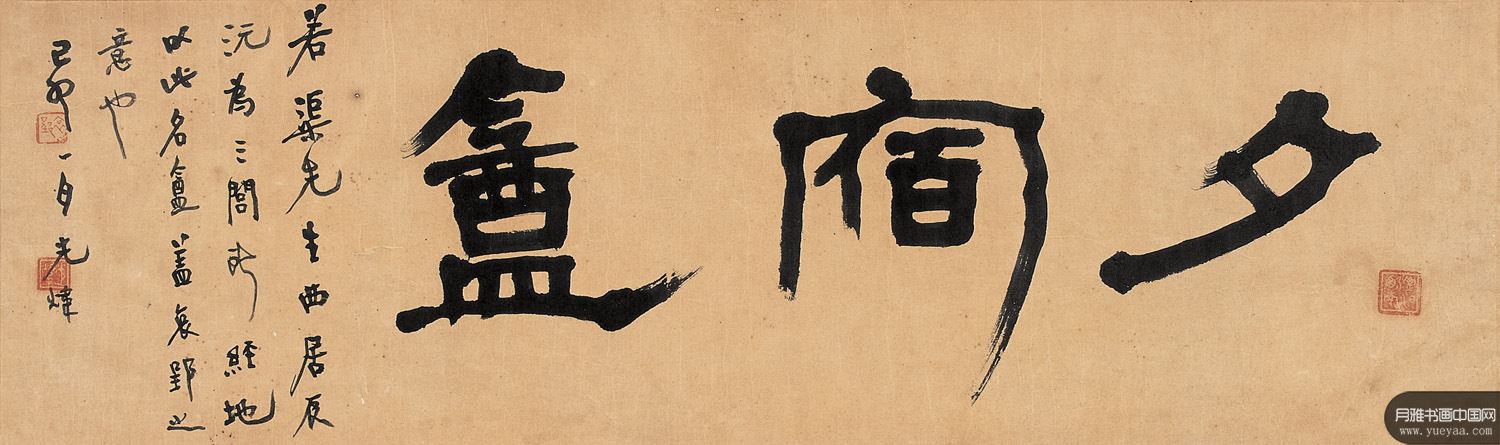 夕宿盦
若渠先生西居辰
沅為三閭所經地
以此名盦蓋哀郢之
意也
己卯一月光煒
月雅书画中国网
www.yueyaa.com